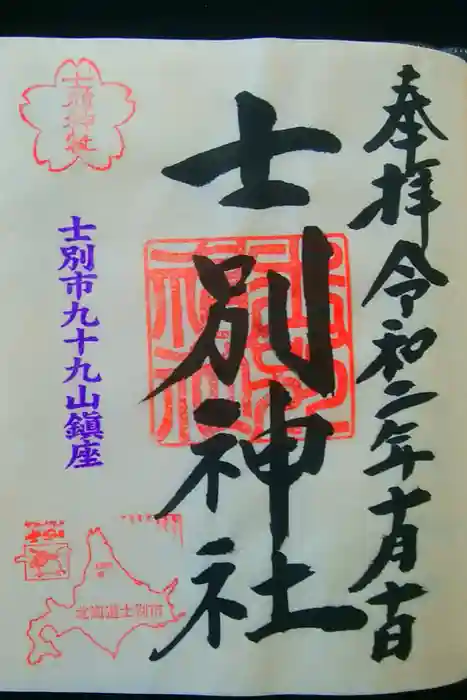 奉拝 令和二年十月十日
士別神社
士別神社
士別市九十九山鎮座
北海道士別市